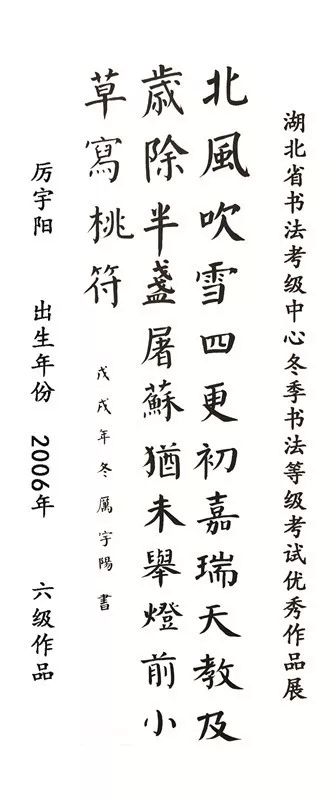 湖北省书法考级中心冬季书法等级考试优秀作品展
北風吹雪四更初嘉瑞天教及
歲除半盞屠蘇猶未舉燈前小
草寫桃符
戊戌年冬厲宇陽書
厉宇阳 出生年份 2006年 六级作品